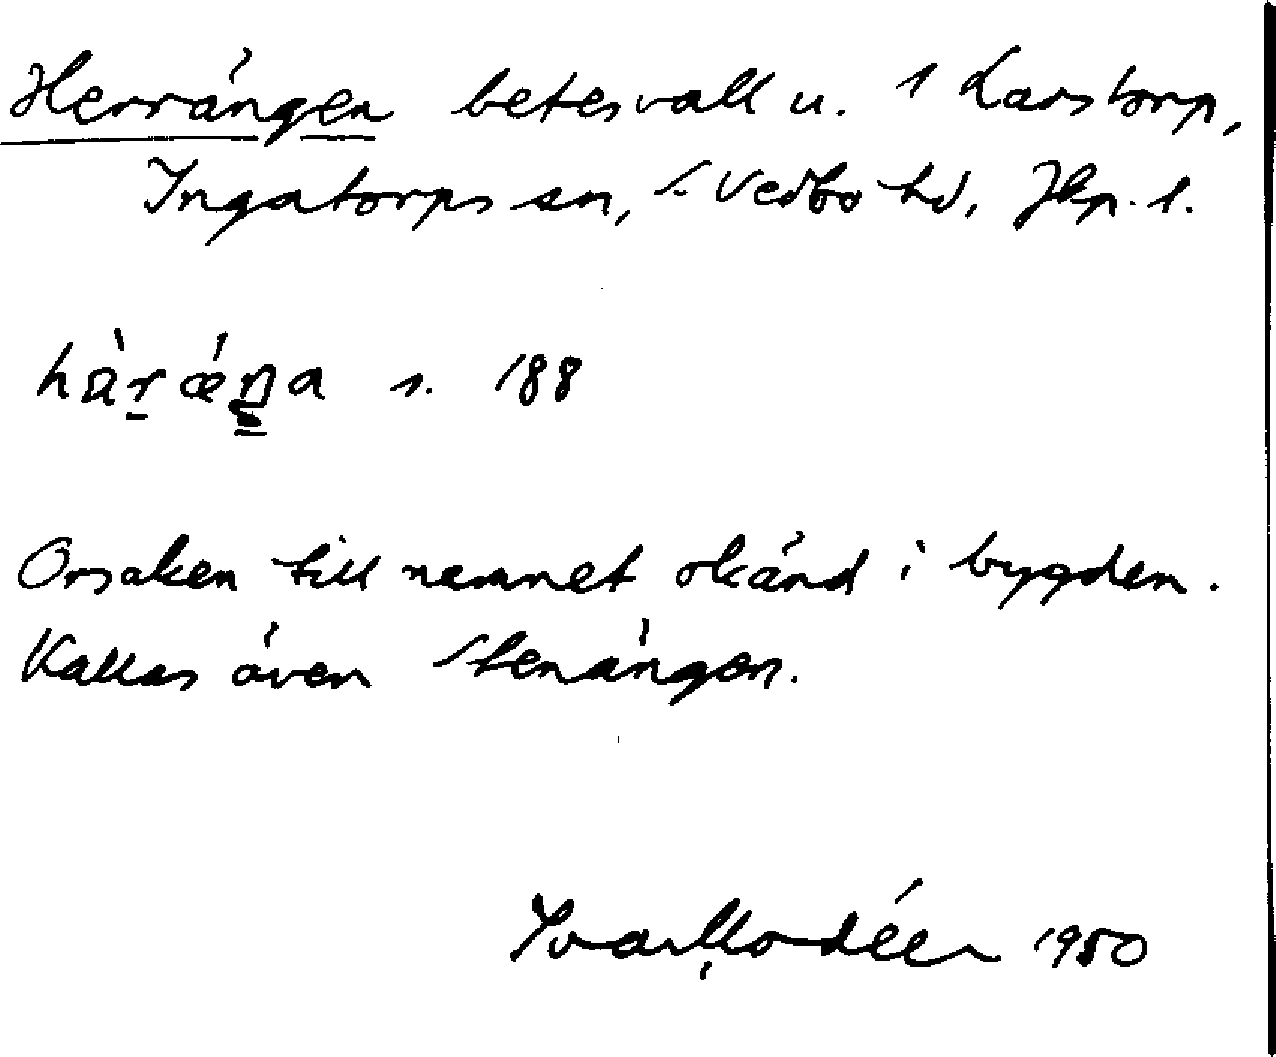 Herrängen betesvall u. 1 Karstorp,
Ingatorps sn, S. Vedbo hd, Jkp. l.
hàr ǽŋa s. 188
Orsaken till namnet okänd i bygden.
Kallas även Stenängen.
Ivar Modéer 1950